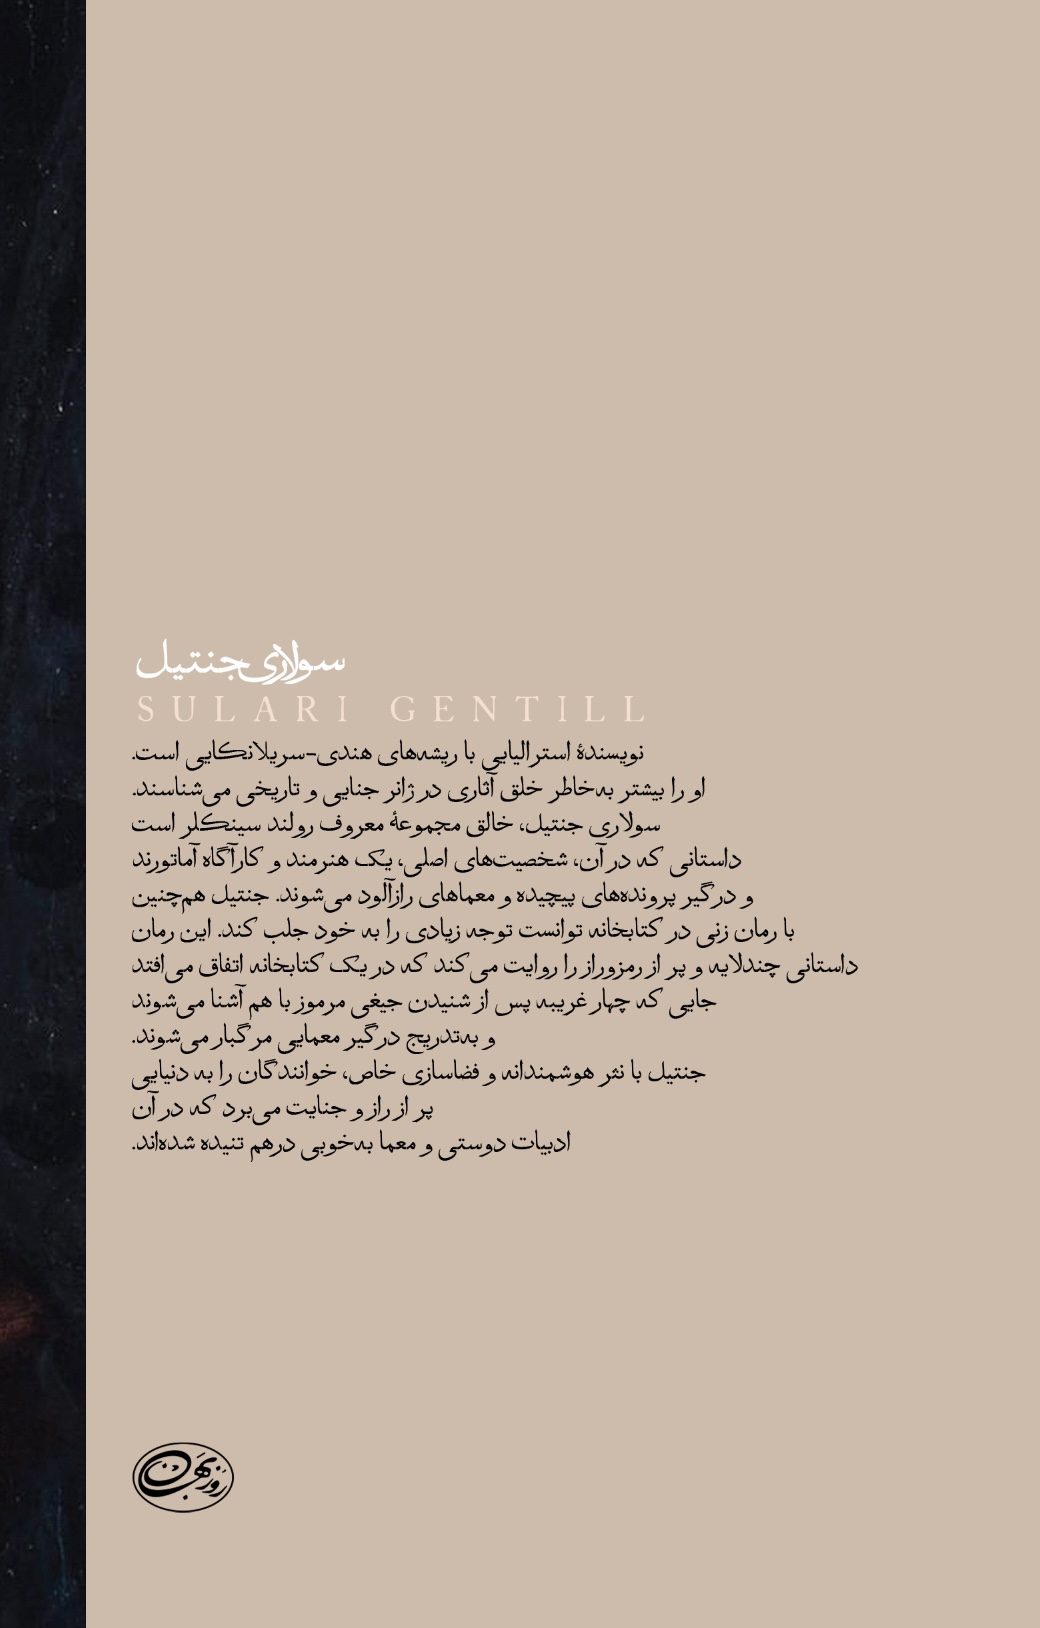 سولاری جنتیل
SULARI GENTILL
نویسندهٔ استرالیایی با ریشه‌های هندی-سریلانکایی است.
او را بیشتر به‌خاطر خلق آثاری در ژانر جنایی و تاریخی می‌شناسند.
سولاری جنتیل، خالق مجموعهٔ معروف رولند سینکلر است
داستانی که در آن، شخصیت‌های اصلی، یک هنرمند و کارآگاه آماتورند
و درگیر پرونده‌های پیچیده و معماهای رازآلود می‌شوند. جنتیل هم‌چنین
با رمان زنی در کتابخانه توانست توجه زیادی را به خود جلب کند. این رمان
داستانی چندلایه و پر از رمزوراز را روایت می‌کند که در یک کتابخانه اتفاق می‌افتد
جایی که چهار غریبه پس از شنیدن جیغی مرموز با هم آشنا می‌شوند
و به‌تدریج درگیر معمایی مرگبار می‌شوند.
جنتیل با نثر هوشمندانه و فضاسازی خاص، خوانندگان را به دنیایی
پر از راز و جنایت می‌برد که در آن
ادبیات دوستی و معما به‌خوبی درهم تنیده شده‌اند.
روزبهان